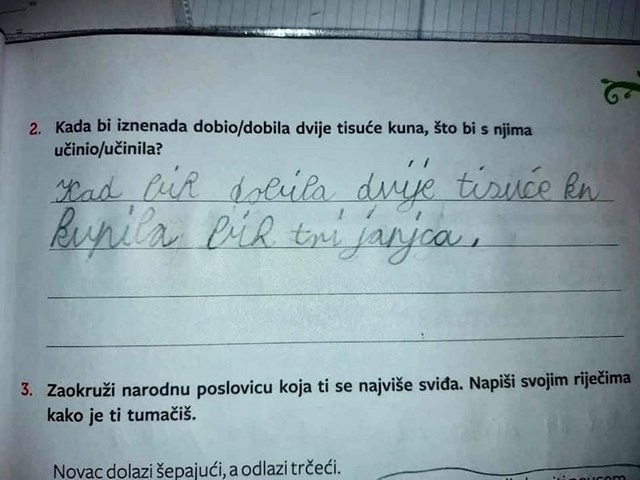 2. Kada bi iznenada dobio/dobila dvije tisuće kuna, što bi s njima
učinio/učinila?
Kad biR dobila dvije tisuće kn
kupila biR tri janjca.
3. Zaokruži narodnu poslovicu koja ti se najviše sviđa. Napiši svojim riječima
kako je ti tumačiš.
Novac dolazi šepajući, a odlazi trčeći.